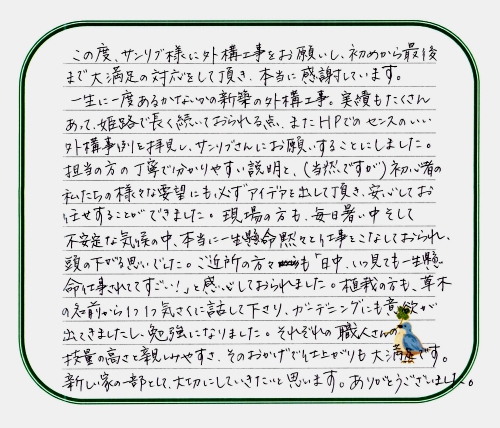 この度、サンリブ様に外構工事をお願いし、初めから最後
まで大満足の対応をして頂き、本当に感謝しています。
一生に一度あるかないかの新築の外構工事。実績もたくさん
あって、姫路で長く続いておられる点、またHPでのセンスのいい
外構事例を拝見し、サンリブさんにお願いすることにしました。
担当の方の丁寧で分かりやすい説明と、(当然ですが)初心者の
私たちの様々な要望にも必ずアイデアを出して頂き、安心してお
任せすることができました。現場の方も、毎日暑い中そして
不安定な気候の中、本当に一生懸命黙々と仕事をこなしておられ、
頭の下がる思いでした。ご近所の方々も「日中、いつ見ても一生懸
命仕事されててすごい!」と感心しておられました。植栽の方も、草木
の名前から1つ1つ気さくに話して下さり、ガーデニングにも意欲が
出てきましたし、勉強になりました。それぞれの職人さんの
技量の高さと親しみやすさ、そのおかげで仕上がりも大満足です。
新しい家の一部として、大切にしていきたいと思います。ありがとうございました。